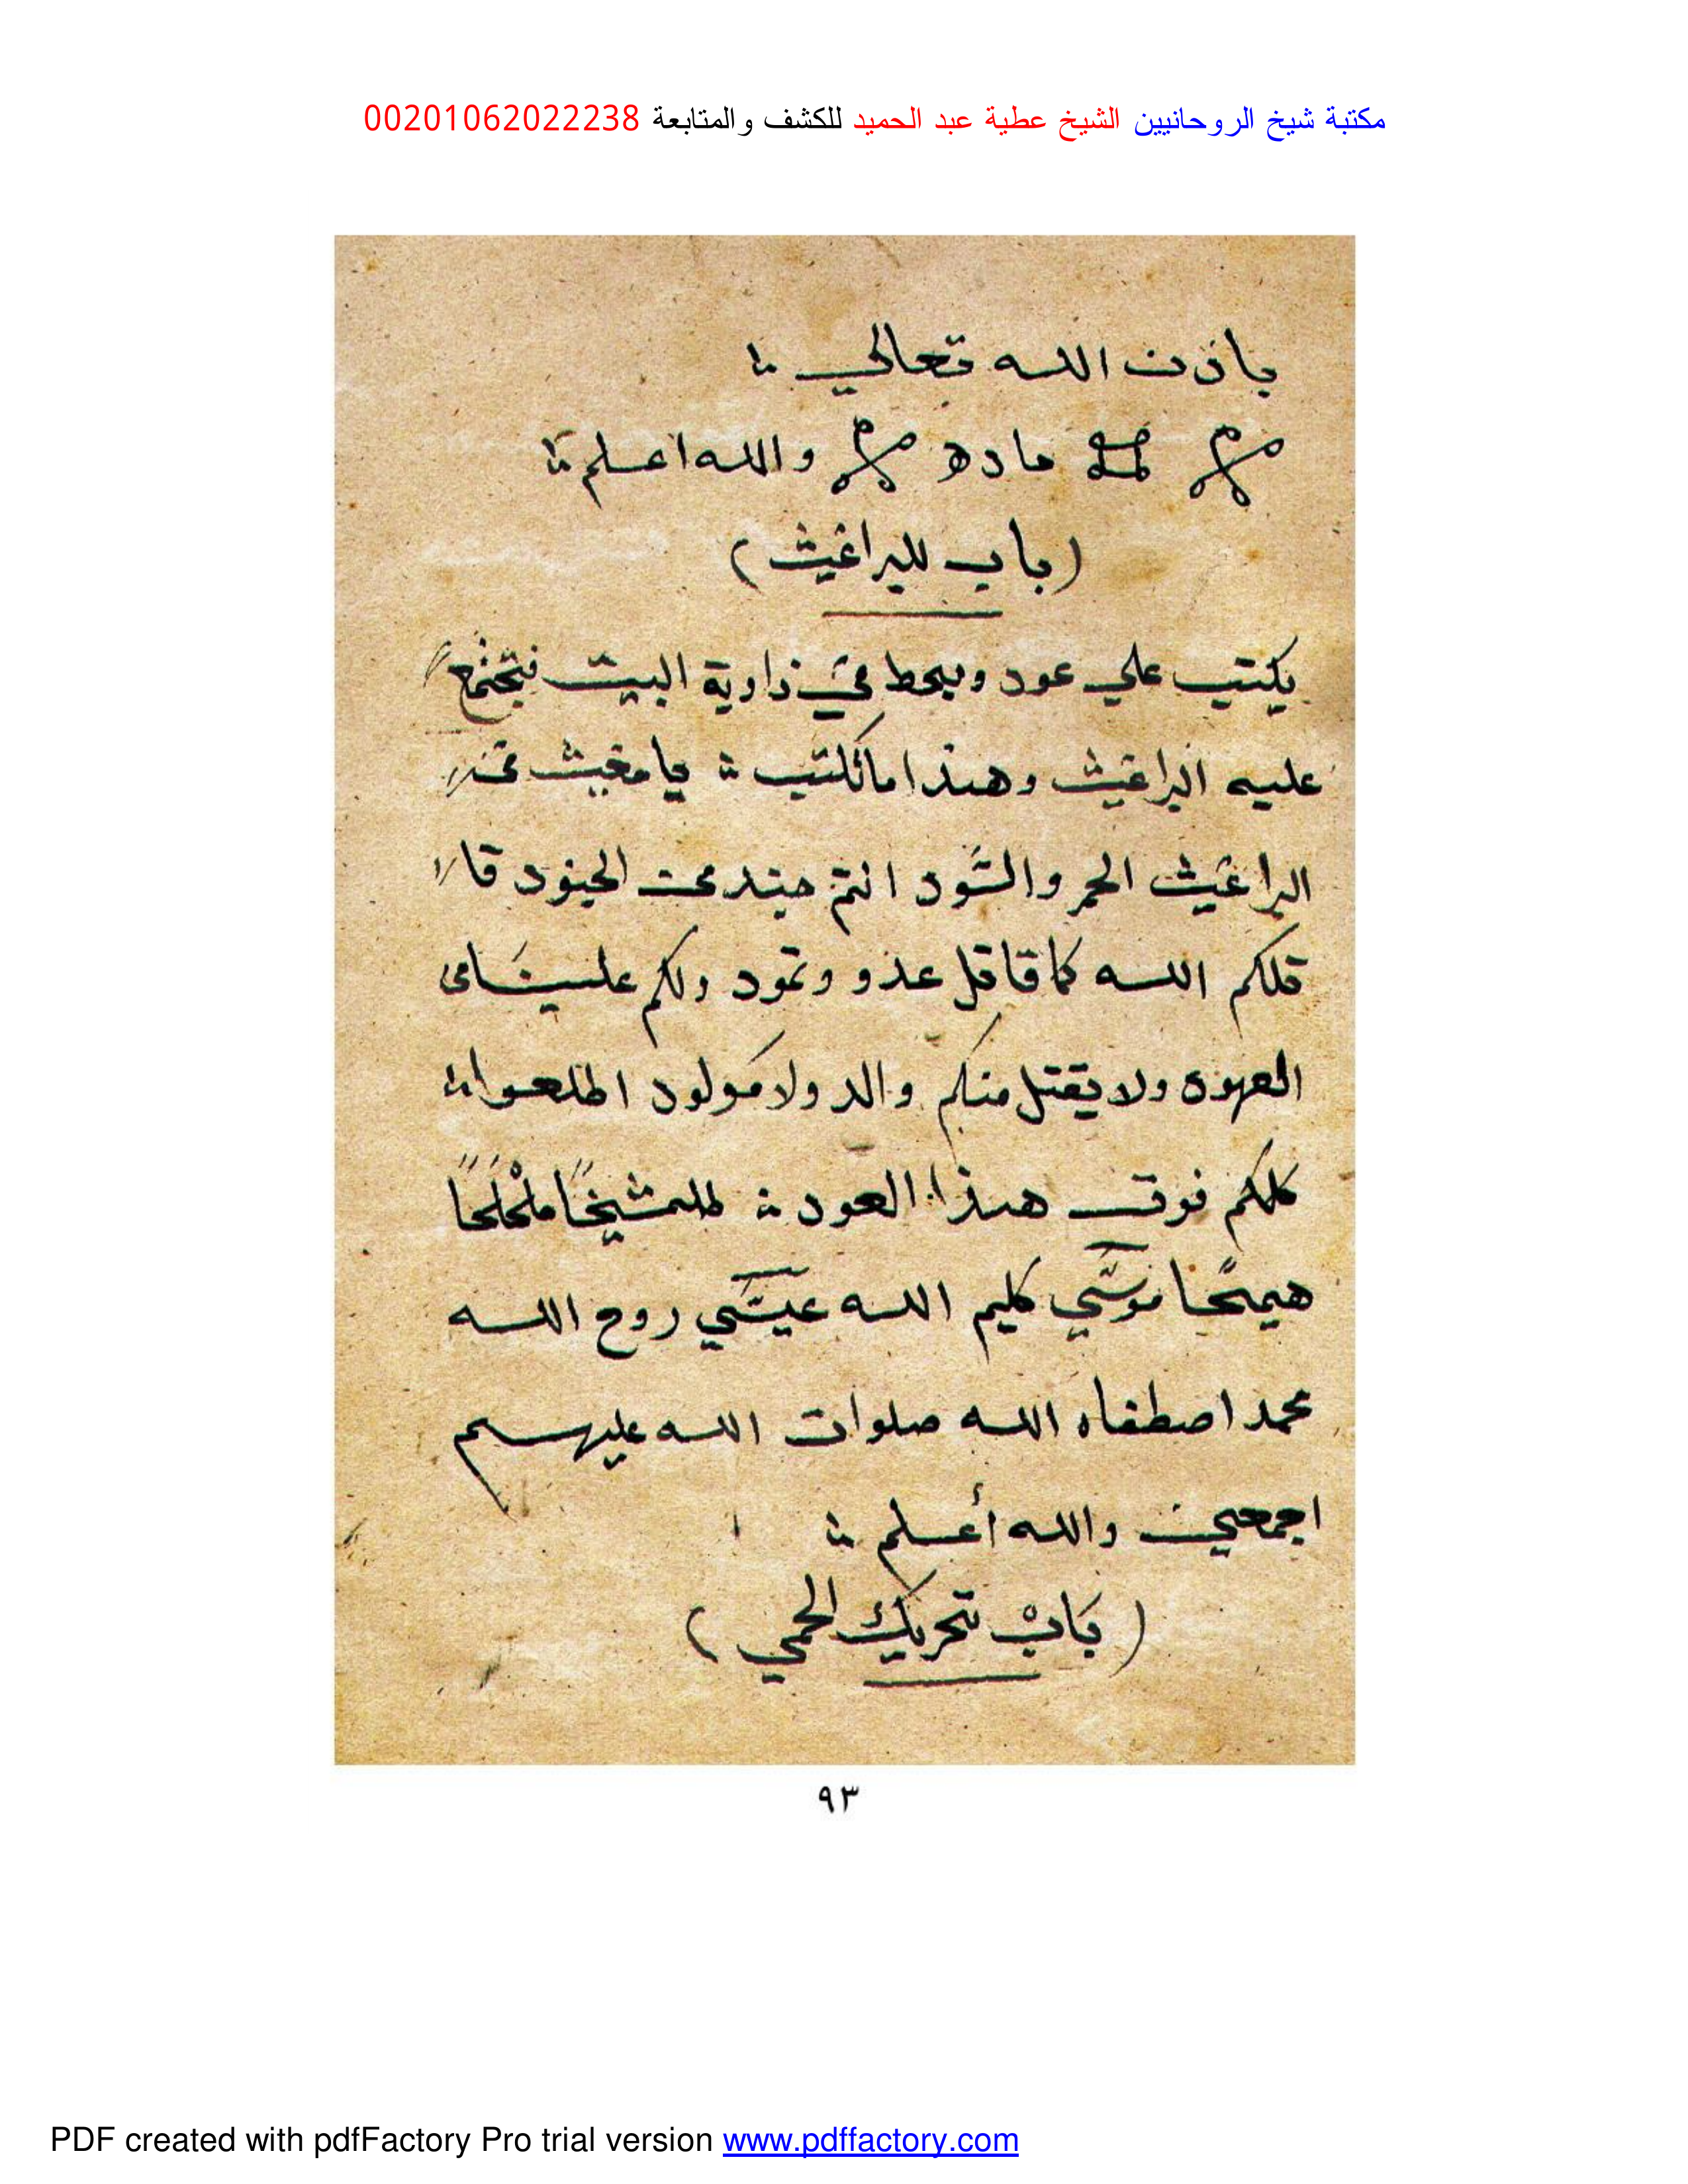 مكتبة شيخ الروحانيين الشيخ عطية عبد الحميد للكشف والمتابعة 00201062022238
باذن الله تعالي
والله اعلم
(باب للبراغيث)
يكتب علي عود ويحط في زاوية البيت فتجتمع
عليه البراغيث وهذا ما تكتب يا
البراغيث الحمر والسود انتم جند من الجنود قا
قلكم الله كما قاتل عدو وثمود ولكم علينا في
العهود ولا يقتل منكم والد ولا مولود اطلعوا
كلكم فوق هذا العود
موسي كليم الله عيسي روح الله
محمد اصطفاه الله صلوات الله عليهم
اجمعين والله أعلم
(باب تحريك الحمي)
٩٣
PDF created with pdfFactory Pro trial version www.pdffactory.com